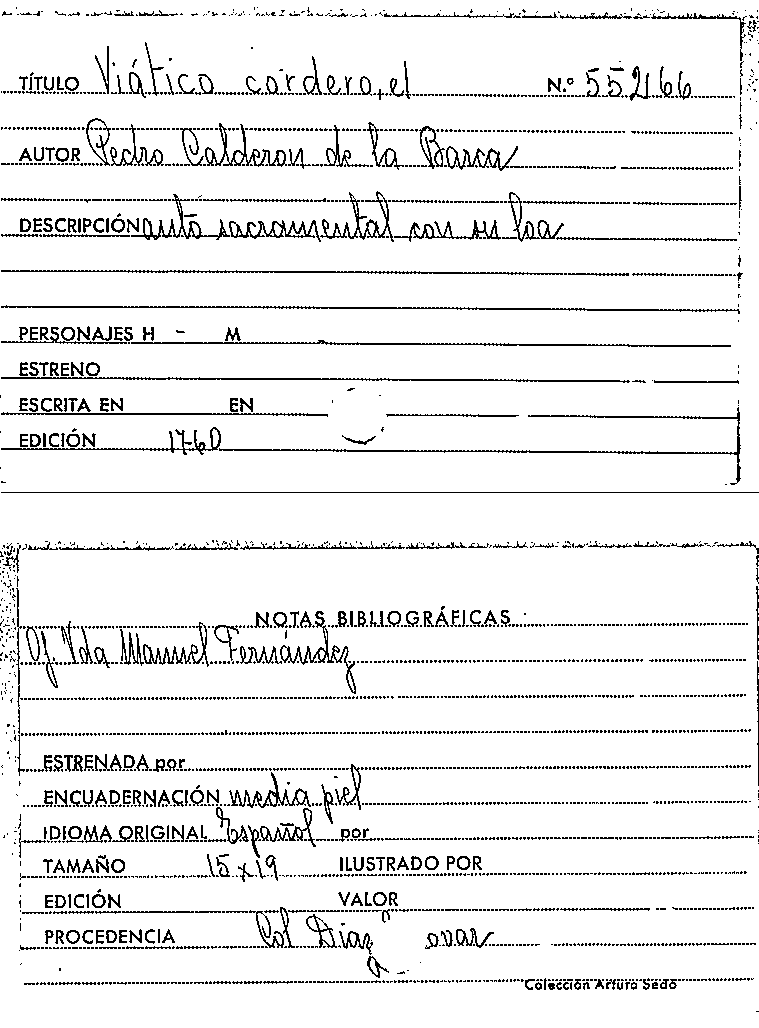 TÍTULO Viático cordero, el N.º 552166
AUTOR Pedro Calderon de la Barca
DESCRIPCIÓN auto sacramental con su loa
PERSONAJES H - M
ESTRENO
ESCRITA EN EN
EDICIÓN 1760
NOTAS BIBLIOGRÁFICAS
Of. Vda Manuel Fernández
ESTRENADA por
ENCUADERNACIÓN media piel
IDIOMA ORIGINAL Español por
TAMAÑO 15x19 ILUSTRADO POR
EDICIÓN VALOR
PROCEDENCIA Col Diaz
Colección Arturo Sedó